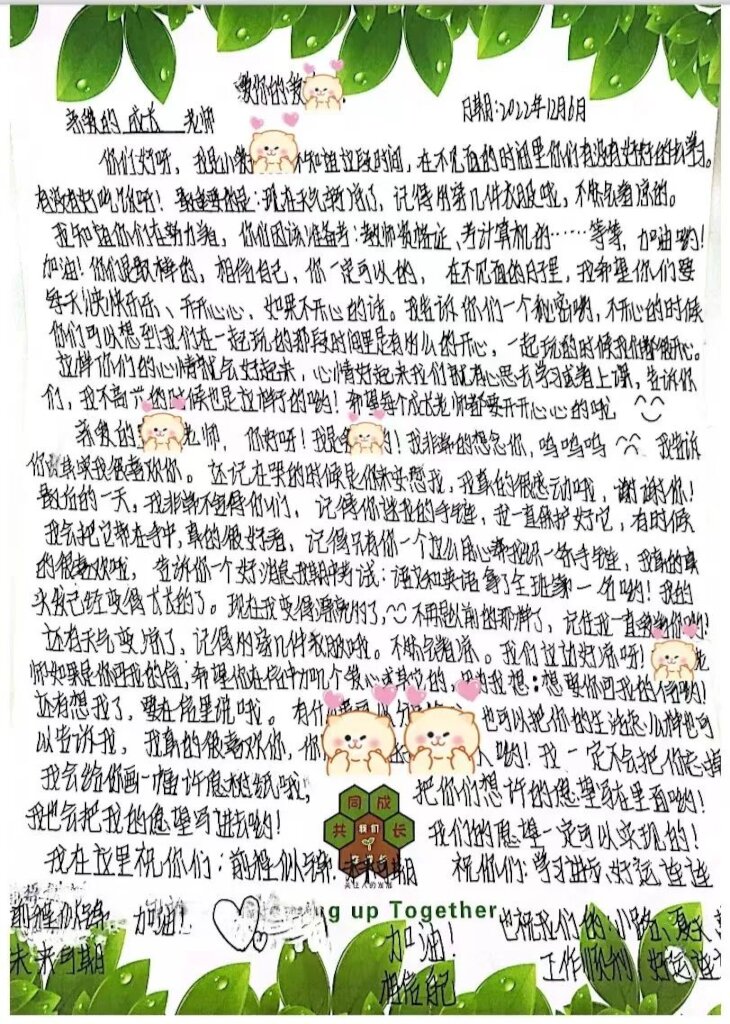 敬你的我
亲爱的 成长 老师 日期:2022年12月6日
你们好呀,我是小 不知道这段时间,在不见面的时间里你们有没有好好的去学习。
有没有好好吃饭呀!最重要的是:现在天气变凉了,记得用穿几件衣服哦,不然会着凉的。
我知道你们在努力着,你们因该准备考:教师资格证、考计算机的……等等,加油哟!
加油!你们是最棒的,相信自己,你一定可以的,在不见面的日子里,我希望你们要
每天快快乐乐、开开心心,如果不开心的话。我告诉你们一个秘密哟,不开心的时候
你们可以想到我们在一起玩的那段时间里是有多么的开心,一起玩的时候我们都很开心。
这样你们的心情就会好起来,心情好起来我们就有心思去学习或者上课,告诉你
们,我不高兴的时候也是这样子的哟!希望每个成长老师都要开开心心的哦
亲爱的 老师,你好呀!我是 !我非常的想念你,呜呜呜 我告诉
你 其实我很喜欢你。还记在哭的时候是你来安慰我,我真的很感动哦,谢谢你!
最后的一天,我非常不舍得你们,记得你送我的手链,我一直保护好它,有时候
我会把它带在手中,真的很好看,记得只有你一个这么用心帮我织一条手链,我真的真
的很喜欢哦,告诉你一个好消息我期中考试:语文和英语拿了全班第一名哟!我的
头发已经变得长长的了。现在我变得漂亮的了,不再是以前的那样了,记住我一直爱着你哟!
还有天气变凉了,记得用穿几件衣服哦。不然会着凉。我们这边好凉呀! 老
师如果是你回我的信,希望你在信中加几个爱心或其它的,因为我想:想要你回我的信哟!
还有想我了,要在信里说哦。有什 可以分 也可以把你的生活怎么样也可
以告诉我,我真的很喜欢你,你 哟!我一定不会把你忘掉
我会给你画一幅许愿树纸哦, 把你们想许的愿望写在里面哟!
我也会把我的愿望写进去哟! 我们的愿望一定可以实现的!
同成
共我们长
关注人的发展
我在这里祝你们:前程似锦,未来可期 祝你们:学习进步、好运连连
前程似锦 加油! ng up Together 也祝我们的:小路、夏天
未来可期 加油! 工作顺利,好运连连
相信自己